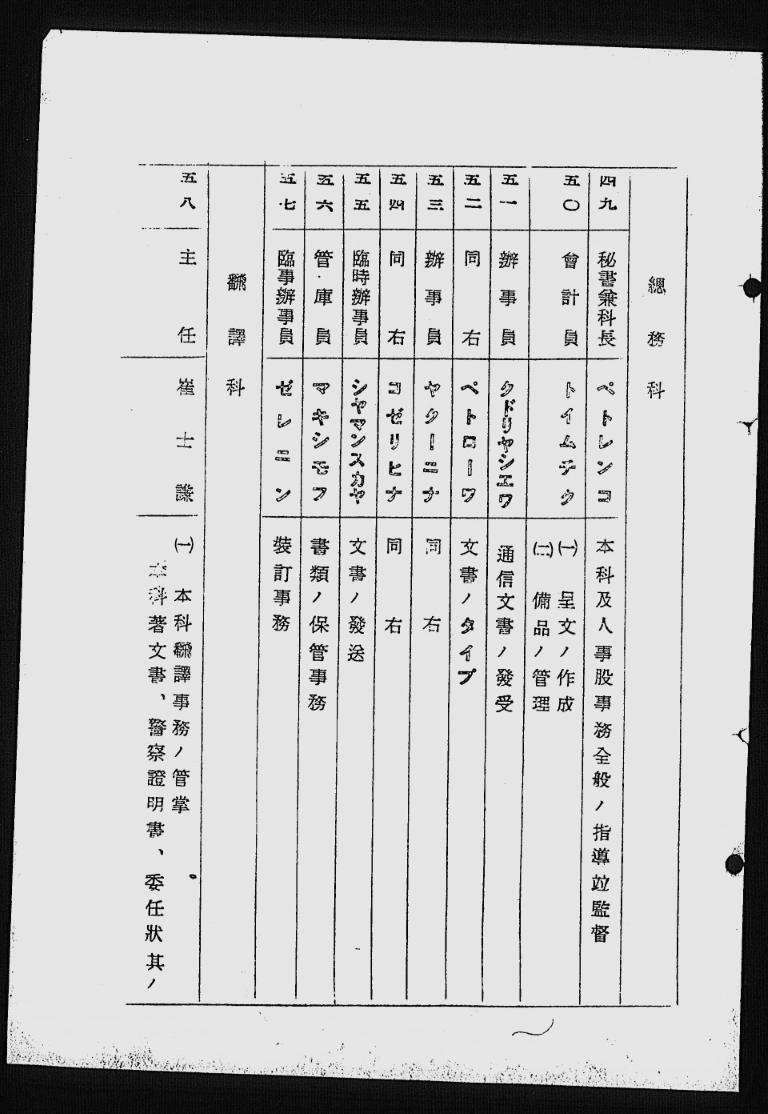 總務科
四九 秘書兼科長 ペトレンコ 本科及人事股事務全般ノ指導竝監督
五〇 會計員 トイムチク ㈠ 呈文ノ作成
㈡ 備品ノ管理
五一 辦事員 クドリヤシエワ 通信文書ノ發受
五二 同右 ペトローワ 文書ノタイプ
五三 辦事員 ヤクーニナ 同右
五四 同右 コゼリヒナ 同右
五五 臨時辦事員 シヤマンスカヤ 文書ノ發送
五六 管庫員 マキシモフ 書類ノ保管事務
五七 臨事辦事員 ゼレニン 裝訂事務
飜譯科
五八 主任 崔士謙 ㈠ 本科飜譯事務ノ管掌
本科著文書、警察證明書、委任狀其ノ